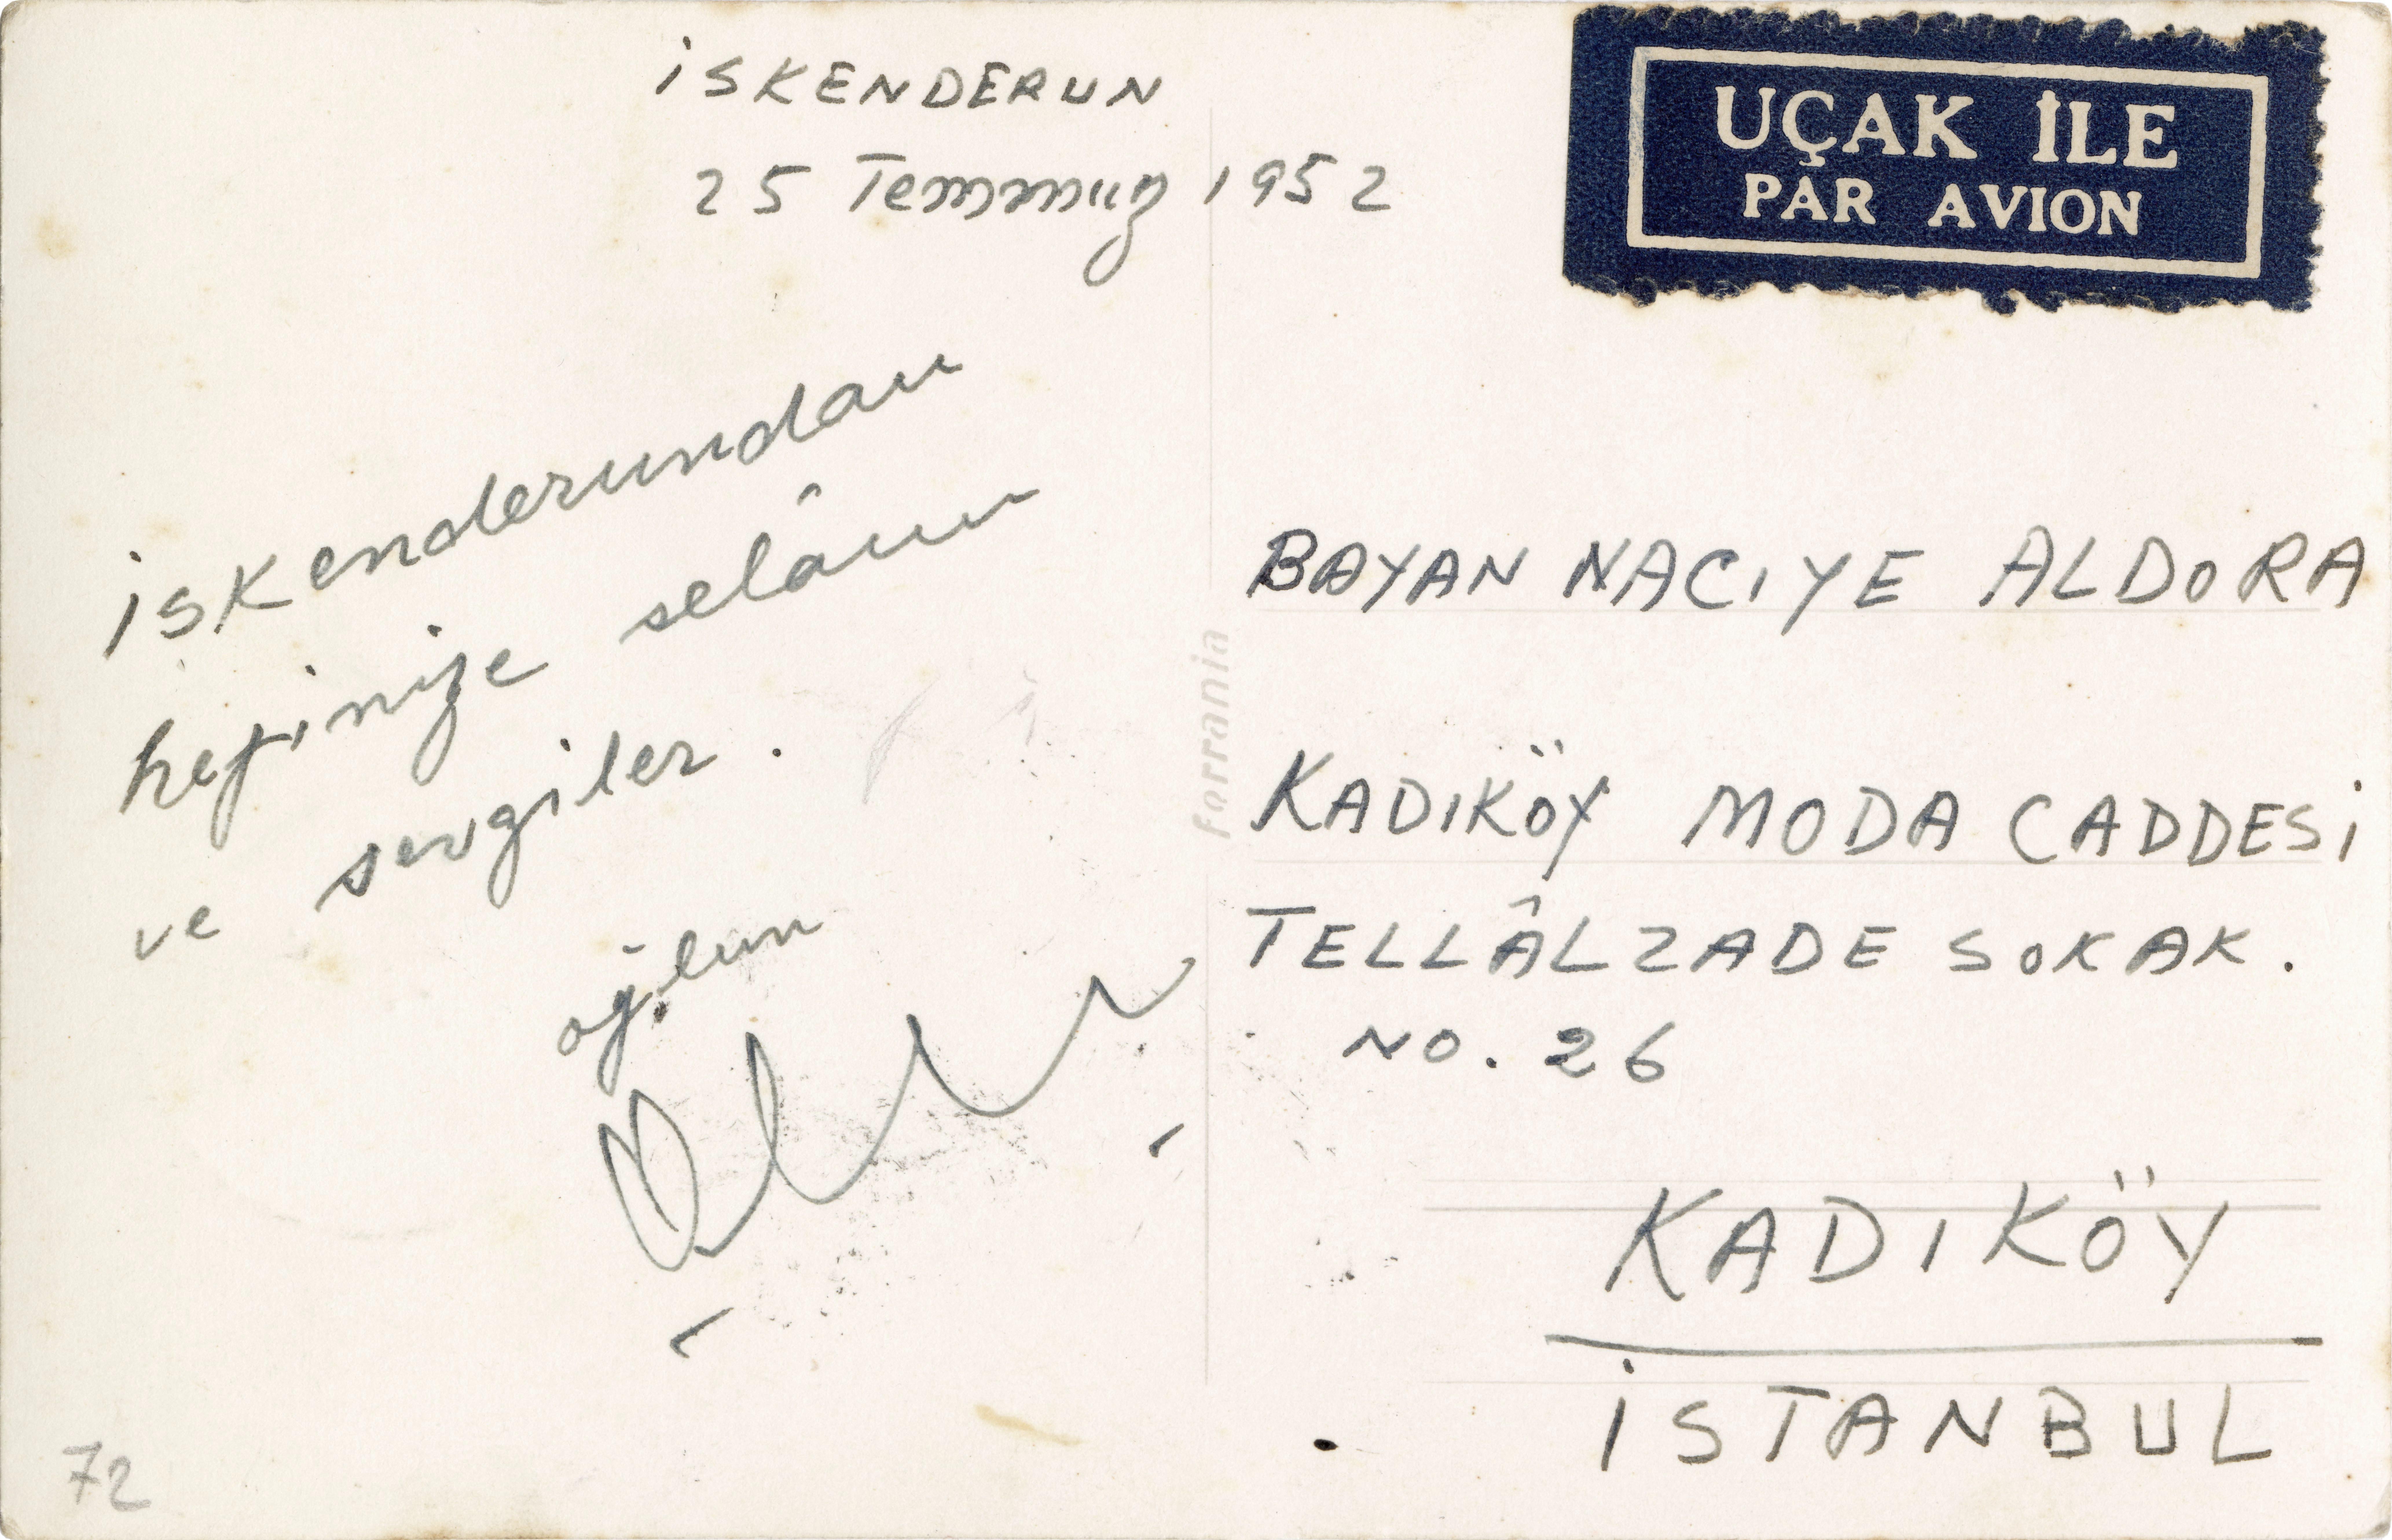 İSKENDERUN
25 Temmuz 1952
UÇAK İLE
PAR AVION
İskenderundan
hepinize selâm
ve sevgiler.
oğlun
BAYAN NACIYE ALDORA
KADIKÖY MODA CADDESİ
TELLÂLZADE SOKAK.
NO. 26
KADIKÖY
İSTANBUL
Ferrania
72